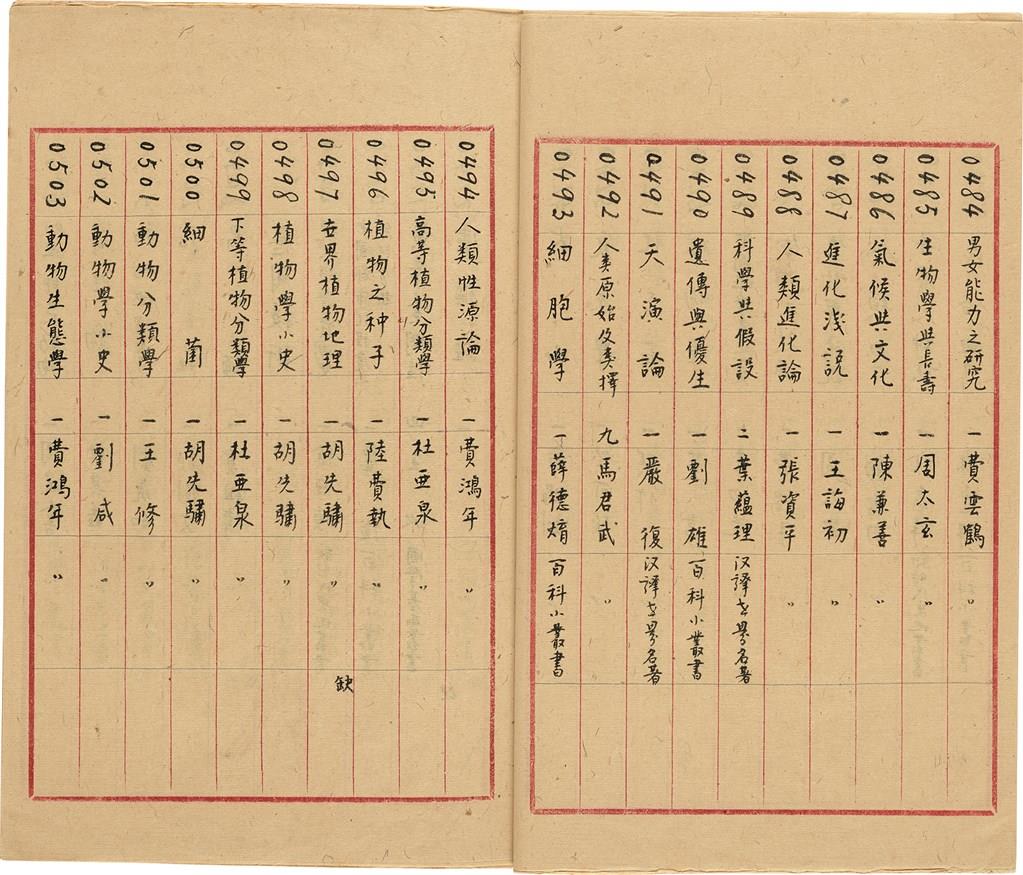 0484 男女能力之研究 一 費雲鶴 〃
0485 生物學與長壽 一 周太玄 〃
0486 氣候與文化 一 陳兼善 〃
0487 進化淺説 一 王誨初
0488 人類進化論 一 張資平 〃
0489 科學與假設 二 葉蘊理 汉譯世界名著
0490 遺傳與優生 一 劉雄 百科小叢書
0491 天演論 一 嚴復 汉譯世界名著
0492 人类原始及类擇 九 馬君武 〃
0493 細胞學 一 薛德焴 百科小叢書
0494 人類性源論 一 費鴻年 〃
0495 高等植物分類學 一 杜亜泉 〃
0496 植物之种子 一 陸費執 〃
0497 世界植物地理 一 胡先驌 〃 缺
0498 植物學小史 一 胡先驌 〃
0499 下等植物分類學 一 杜亜泉 〃
0500 細菌 一 胡先驌 〃
0501 動物分類學 一 王修 〃
0502 動物學小史 一 劉咸 〃
0503 動物生態學 一 費鴻年 〃